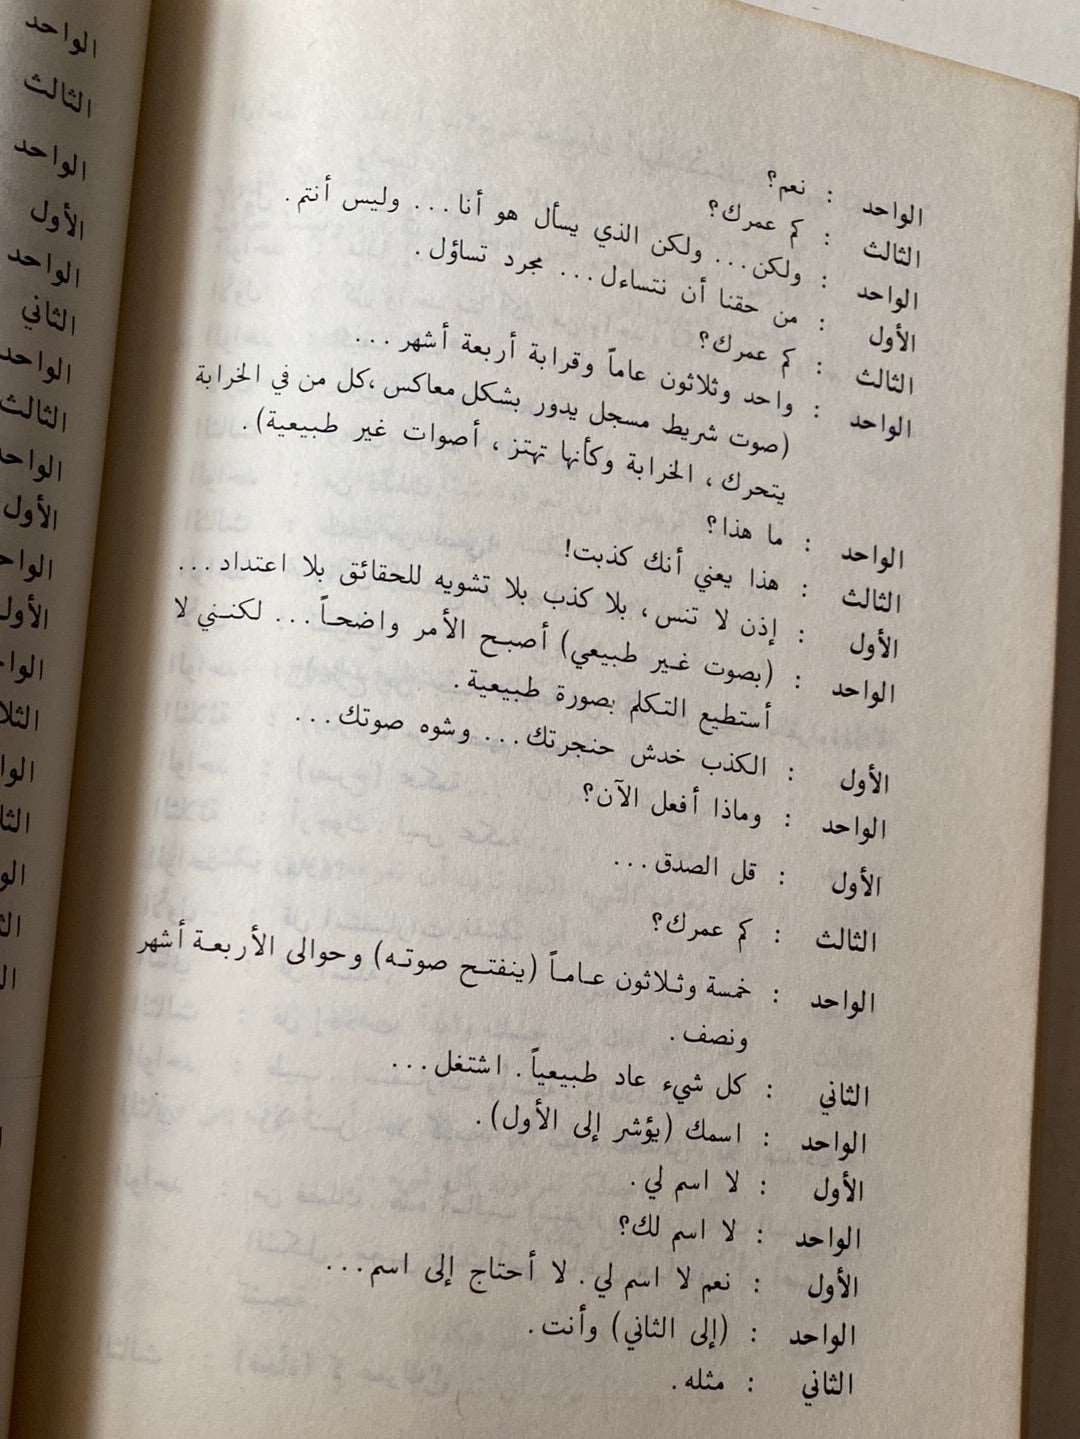 الواحد : نعم؟
الثالث : كم عمرك؟
الواحد : ولكن... ولكن الذي يسأل هو أنا... وليس أنتم.
الأول : من حقنا أن نتساءل... مجرد تساؤل.
الثالث : كم عمرك؟
الواحد : واحد وثلاثون عاماً وقرابة أربعة أشهر...
(صوت شريط مسجل يدور بشكل معاكس ،كل من في الخرابة
يتحرك ، الخرابة وكأنها تهتز ، أصوات غير طبيعية).
الواحد : ما هذا؟
الثالث : هذا يعني أنك كذبت!
الأول : إذن لا تنس، بلا كذب بلا تشويه للحقائق بلا اعتداد...
الواحد : (بصوت غير طبيعي) أصبح الأمر واضحاً... لكنني لا
أستطيع التكلم بصورة طبيعية.
الأول : الكذب خدش حنجرتك... وشوه صوتك...
الواحد : وماذا أفعل الآن؟
الأول : قل الصدق...
الثالث : كم عمرك؟
الواحد : خمسة وثلاثون عاماً (ينفتح صوته) وحوالى الأربعة أشهر
ونصف.
الثاني : كل شيء عاد طبيعياً. اشتغل...
الواحد : اسمك (يؤشر إلى الأول).
الأول : لا اسم لي.
الواحد : لا اسم لك؟
الأول : نعم لا اسم لي. لا أحتاج إلى اسم...
الواحد : (إلى الثاني) وأنت.
الثاني : مثله.
الواحد
الثالث
الواحد
الأول
الواحد
الثاني
الواحد
الثالث
الواحد
الأول